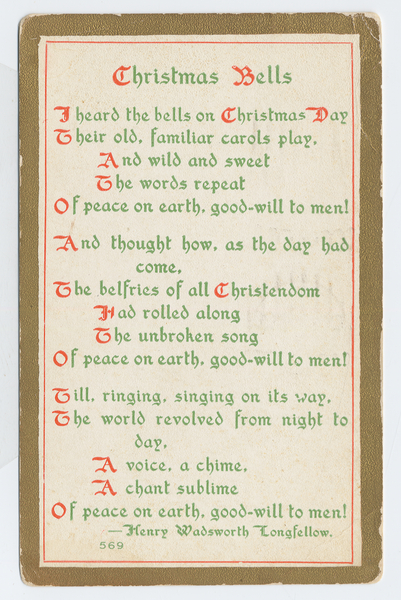 Christmas Bells
I heard the bells on Christmas Day
Their old, familiar carols play,
And wild and sweet
The words repeat
Of peace on earth, good-will to men!
And thought how, as the day had
come,
The belfries of all Christendom
Had rolled along
The unbroken song
Of peace on earth, good-will to men!
Till, ringing, singing on its way,
The world revolved from night to
day,
A voice, a chime,
A chant sublime
Of peace on earth, good-will to men!
—Henry Wadsworth Longfellow.
569